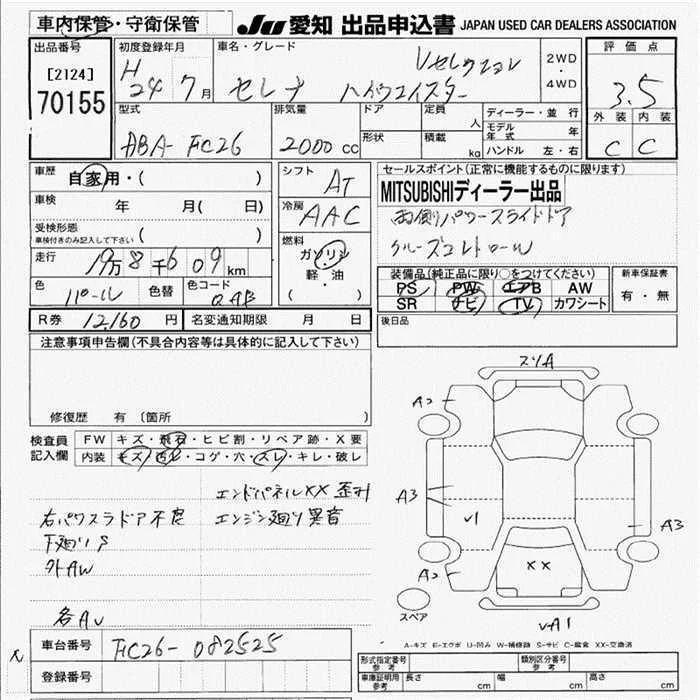 車内保管・守衛保管 JU 愛知 出品申込書 JAPAN USED CAR DEALERS ASSOCIATION
出品番号 [2124] 70155
初度登録年月 H 24 7月
車名・グレード セレナ ハイウェイスター Vセレクション
2WD・4WD
評価点 3.5
外装 内装
C C
型式 ABA-FC26
排気量 2000 cc
ドア 形状
定員 人
積載 kg
ディーラー・並行
モデル年式 年
ハンドル 左・右
車歴 自家用・( )
車検 年 月( 日)
受検形態 ( )
車検付きのみ記入して下さい
走行 19万8千609km
色 パール 色替 色コード QAB
シフト AT
冷房 AAC
燃料 ガソリン・軽油
( )
セールスポイント(正常に機能するものに限ります)
MITSUBISHIディーラー出品
両側パワースライドドア
クルーズコントロール
装備品(純正品に限り○をつけてください)
PS PW エアB AW
SR ナビ TV カワシート
新車保証書
有・無
後日品
R券 12160 円 名変通知期限 月 日
注意事項申告欄(不具合内容等は具体的に記入して下さい)
修復歴 有 〔箇所 〕
検査員記入欄
FW キズ・飛石・ヒビ割・リペア跡・X要
内装 キズ・汚レ・コゲ・穴・スレ・キレ・破レ
エンドパネルXX 歪み
右パワスラドア不良 エンジン廻り異音
下廻りS
外AW
各AU
スリA
A2
A3
A3
√1
XX
A2
スペア
√A1
A-キズ E-エクボ U-凹み W-補修跡 S-サビ C-腐食 XX-交換済
車台番号 FC26-082525
登録番号
形式指定番号 参考 類別区分番号 参考
車庫証明用 参考 長さ cm 幅 cm 高さ cm